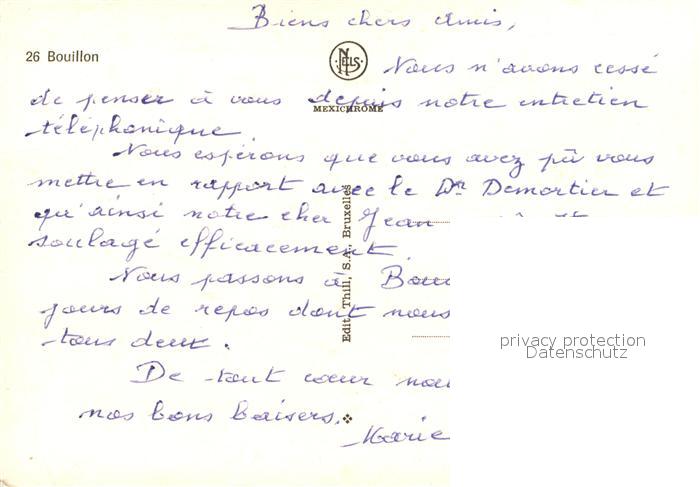 Biens chers Amis,
26 Bouillon
NELS
Nous n'avons cessé
de penser à vous depuis notre entretien
MEXICHROME
téléphonique.
Nous espérons que vous avez pû vous
mettre en rapport avec le Dr Demortier et
qu'ainsi notre cher Jean
soulagé efficacement.
Nous passons à
jours de repos dont nous
tous deux.
De tout cœur
nos bons baisers.
Marie
Edit. Thill, S.A., Bruxelles
privacy protection
Datenschutz